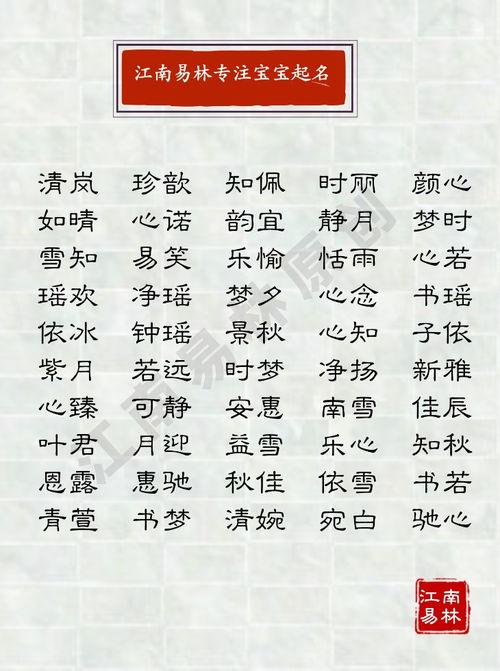 江南易林专注宝宝起名
清岚 珍歆 知佩 时丽 颜心
如晴 心诺 韵宜 静月 梦时
雪知 易笑 乐愉 恬雨 心若
瑶欢 净瑶 梦夕 心念 书瑶
依冰 钟瑶 景秋 心知 子依
紫月 若远 时梦 净扬 新雅
心臻 可静 安惠 南雪 佳辰
叶君 月迎 益雪 乐心 知秋
恩露 惠驰 秋佳 依雪 书若
青萱 书梦 清婉 宛白 驰心
江南易林原创
江南
易林